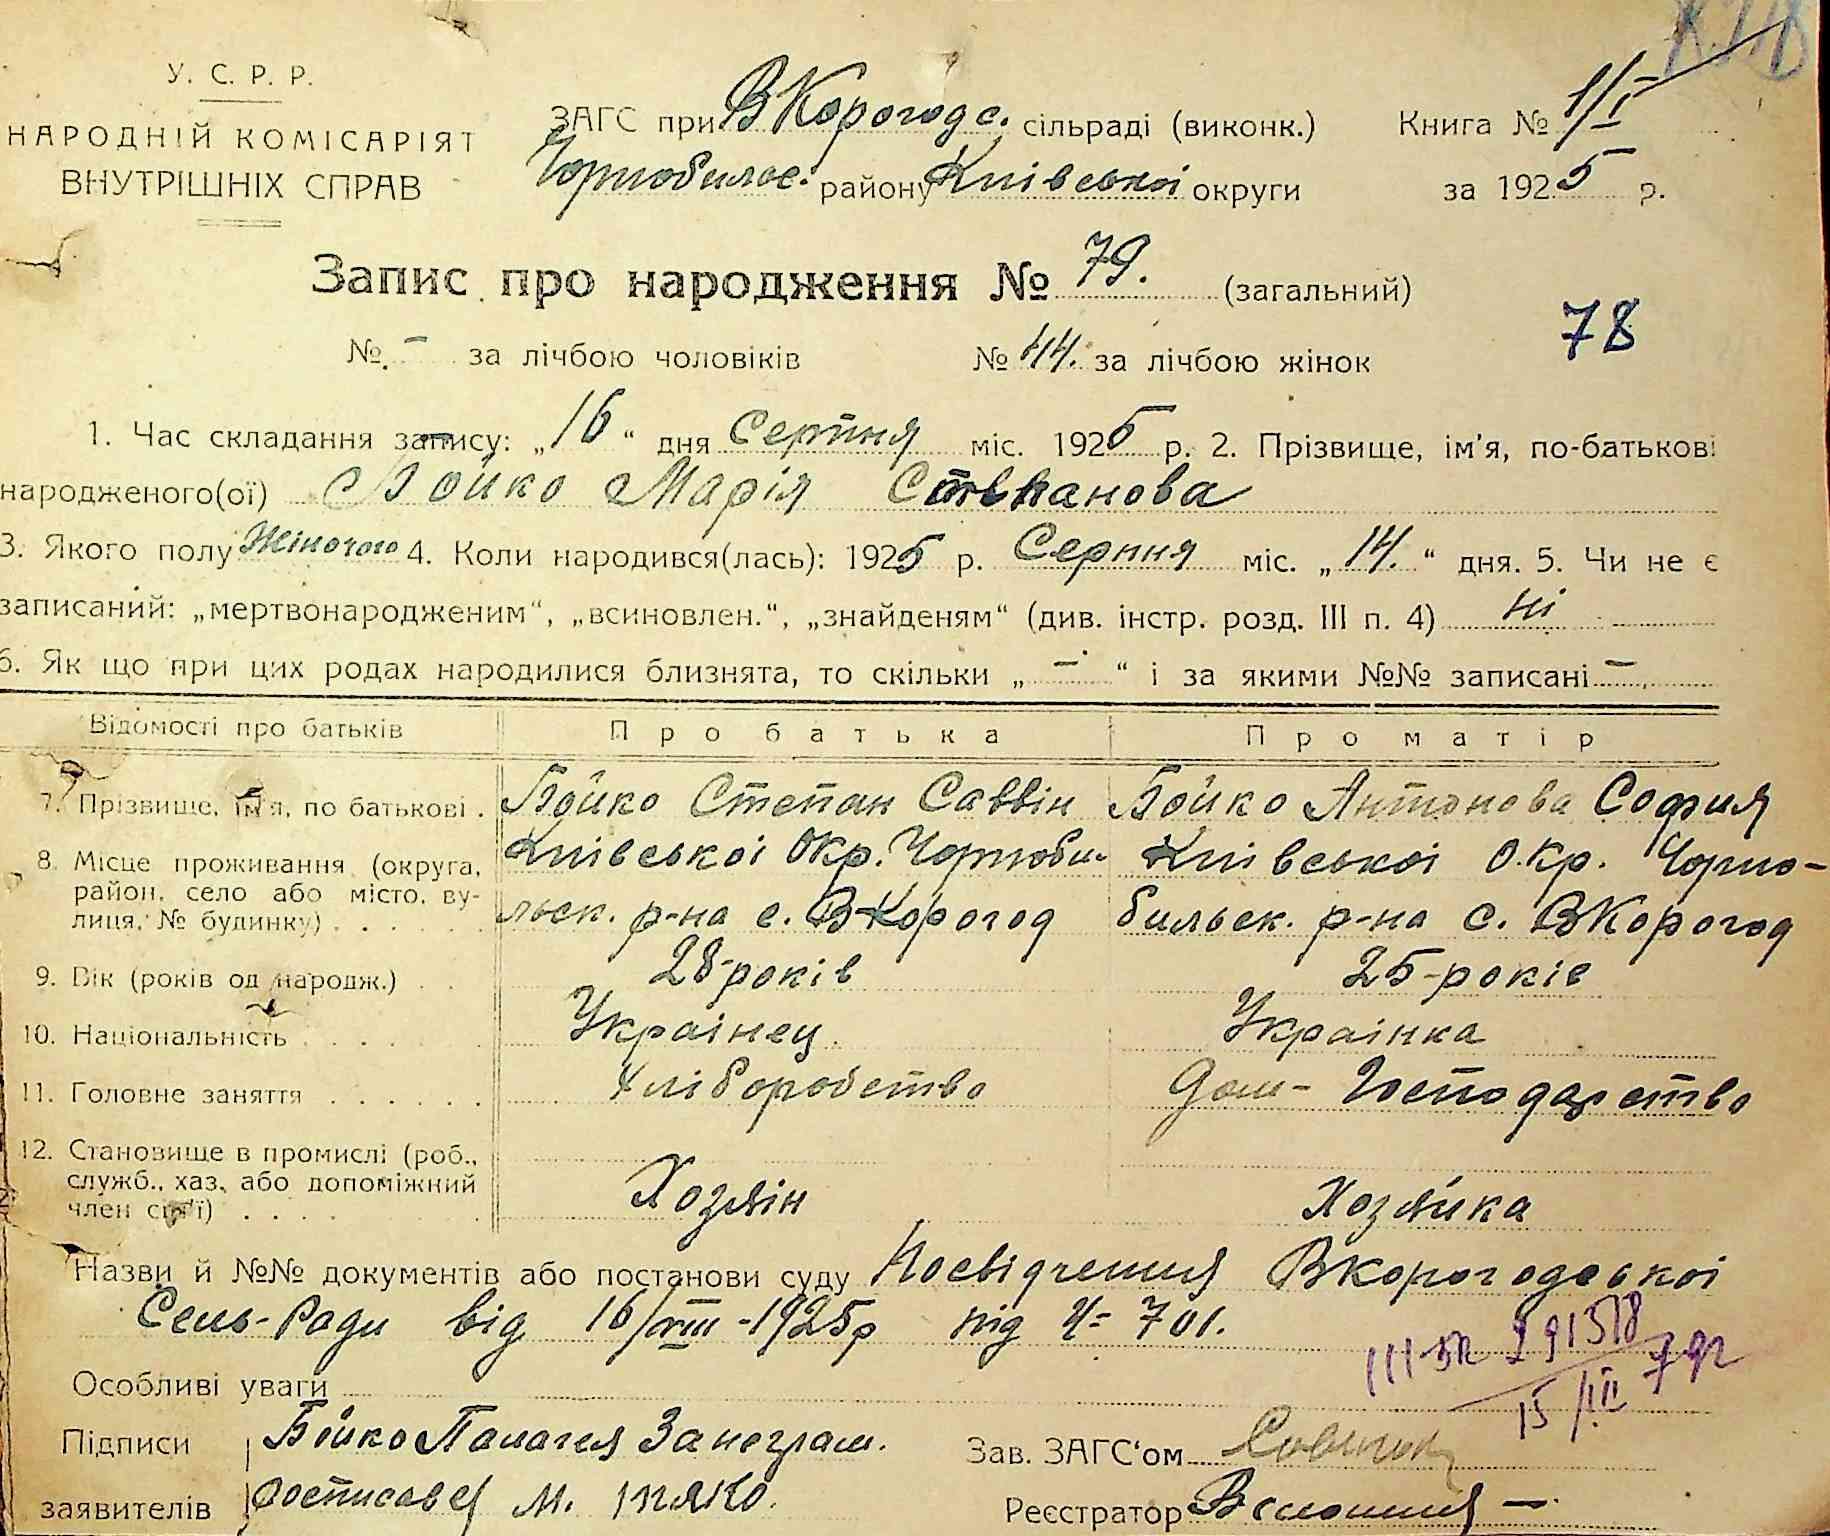 У. С. Р. Р.
НАРОДНІЙ КОМІСАРІЯТ
ВНУТРІШНІХ СПРАВ
ЗАГС при ВКорогодс. сільраді (виконк.)
Чорнобильс. району Київської округи
Книга № 1/I
за 1925 р.
Запис про народження № 79. (загальний)
№ - за лічбою чоловіків № 44. за лічбою жінок
78
1. Час складання запису: „16“ дня Серпня міс. 1925 р. 2. Прізвище, ім'я, по-батькові
народженого(ої) Бойко Марія Степанова
3. Якого полу Жіночого 4. Коли народився(лась): 1925 р. Серпня міс. „14.“ дня. 5. Чи не є
записаний: „мертвонародженим“, „всиновлен.“, „знайденям“ (див. інстр. розд. III п. 4) ні
6. Як що при цих родах народилися близнята, то скільки „-“ і за якими №№ записані -
Відомості про батьків Про батька Про матір
7. Прізвище, ім'я, по батькові . Бойко Степан Саввін Бойко Антонова София
8. Місце проживання (округа, район, село або місто, вулиця, № будинку) . . . . . .
Київської Окр. Чорноби- Київської Окр. Чорно-
льск. р-на с. ВКорогод бильск. р-на с. ВКорогод
9. Вік (років од народж.) . . 28-років 25-років
10. Національність . . . . . Українец Українка
11. Головне заняття . . . . . . Хліборобство Дом-Господарство
12. Становище в промислі (роб., служб., хаз. або допоміжний член сім'ї) . . . . Хозяїн Хозяйка
Назви й №№ документів або постанови суду Посвідчення Вкорогодської
Сель-Ради від 16/VIII-1925р під Ч= 701.
III БК 291518
15/III 79г
Особливі уваги
Підписи Бойко Палагея За неграм.
заявителів росписався М.
Зав. ЗАГС'ом
Реєстратор